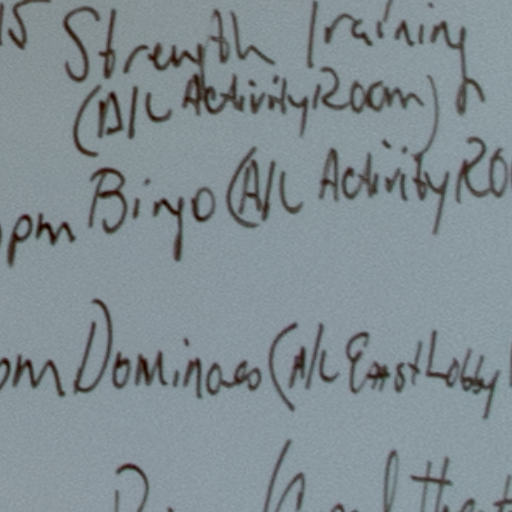 15 Strength Training
(A/L Activity Room)
pm Bingo (A/L Activity Ro
pm Dominoes (A/L East Lobby